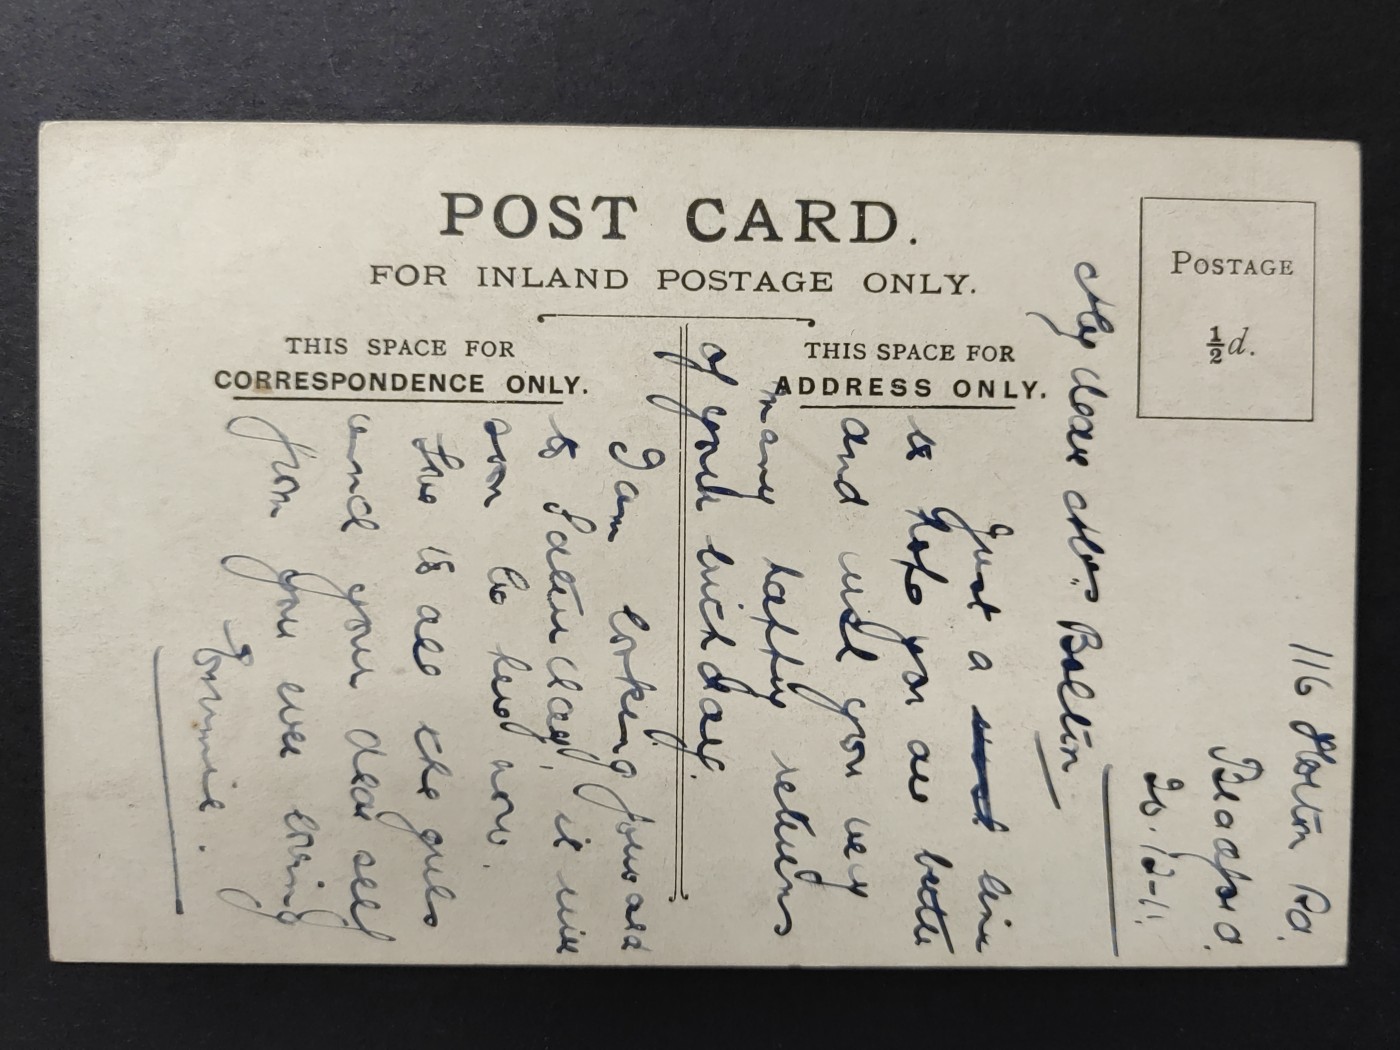 POST CARD.
FOR INLAND POSTAGE ONLY.
THIS SPACE FOR
CORRESPONDENCE ONLY.
THIS SPACE FOR
ADDRESS ONLY.
POSTAGE
½d.
116 Horton Rd.
Bradford.
20.12-11.
My dear Mrs. Bolton
Just a line
to hope you are better
and wish you very
many happy returns
of your birthday.
I am looking forward
to Saturday, it will
soon be here now.
Love to all the girls
and your dear self
from your ever loving